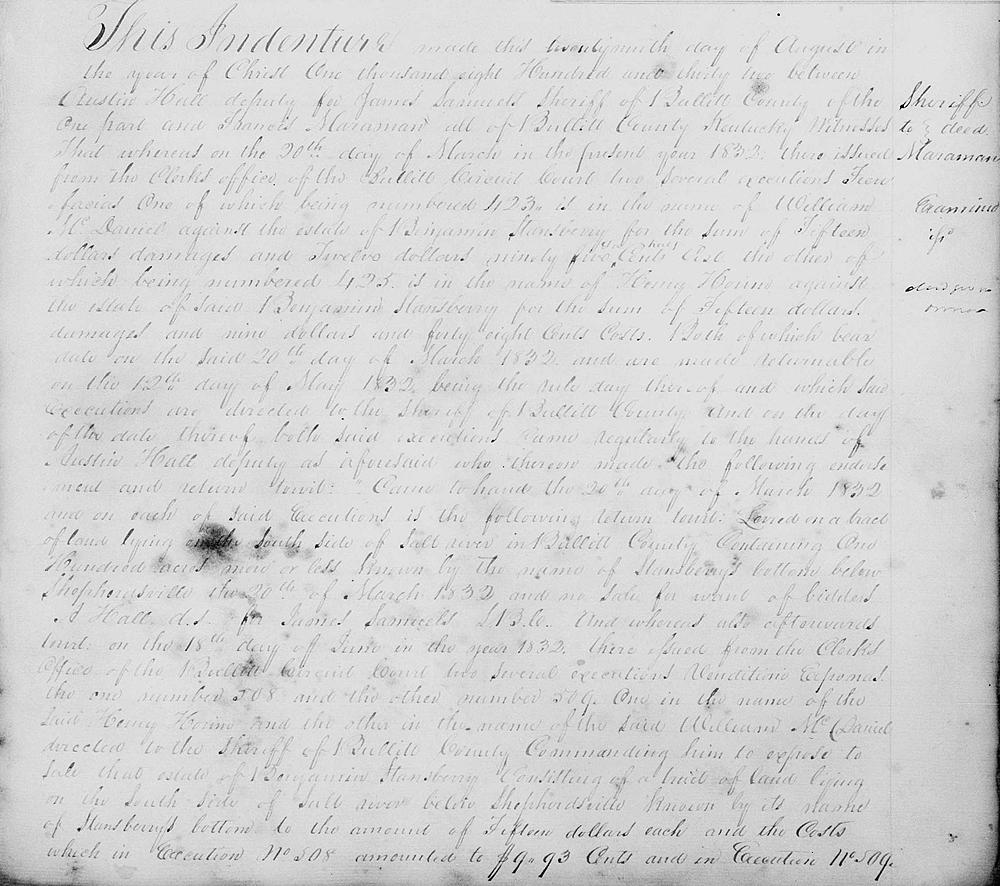 This Indenture made this twentyninth day of August in
the year of Christ One thousand eight Hundred and thirty two between
Austin Hall deputy for James Samuels Sheriff of Bullitt County of the
One part and Francis Maraman all of Bullitt County Kentucky Witnesses
That whereas on the 20th day of March in the present year 1832. there issued
from the Clerks office of the Bullitt Circuit Court two several executions Fieri
facias One of which being numbered 423. is in the name of William
Mc Daniel against the estate of Benjamin Stansberry for the sum of Fifteen
dollars damages and Twelve dollars ninety five Cents Cost the other of
which being numbered 425. is in the name of Henry against
the estate of said Benjamin Stansberry for the sum of Fifteen dollars.
damages and nine dollars and forty eight Cents Costs. Both of which bear
date on the said 20th day of March 1832. and are made returnable
on the 12th day of May 1832 being the rule day thereof and which said
executions are directed to the Sheriff of Bullitt County and on the day
of the date thereof both said executions came regularly to the hands of
Austin Hall deputy as aforesaid who thereon made the following endorse
ment and return towit: "Came to hand the 20th day of March 1832
and on each of said Executions is the following return towit: Levied on a tract
of land lying on the South side of Salt river in Bullitt County Containing One
Hundred acres more or less known by the name of Stansberrys bottom below
Shepherdsville the 20th of March 1832 and no sale for want of bidders
A Hall d.s. for James Samuels S.B.C. And whereas also afterwards
towit: on the 18th day of June in the year 1832. there issued from the Clerks
Office of the Bullitt Circuit Court two several executions Venditioni Exponas.
the one number 508 and the other number 509. One in the name of the
said Henry and the other in the name of the said William Mc Daniel
directed to the Sheriff of Bullitt County Commanding him to expose to
sale that estate of Benjamin Stansberry Consisting of a tract of land lying
on the South side of Salt river below Shepherdsville known by its name
of Stansberrys bottom to the amount of Fifteen dollars each and the Costs
which in Execution No 508 amounted to $9.93 Cents and in Execution No 509.
Sheriff
to deed
Maraman
Examined